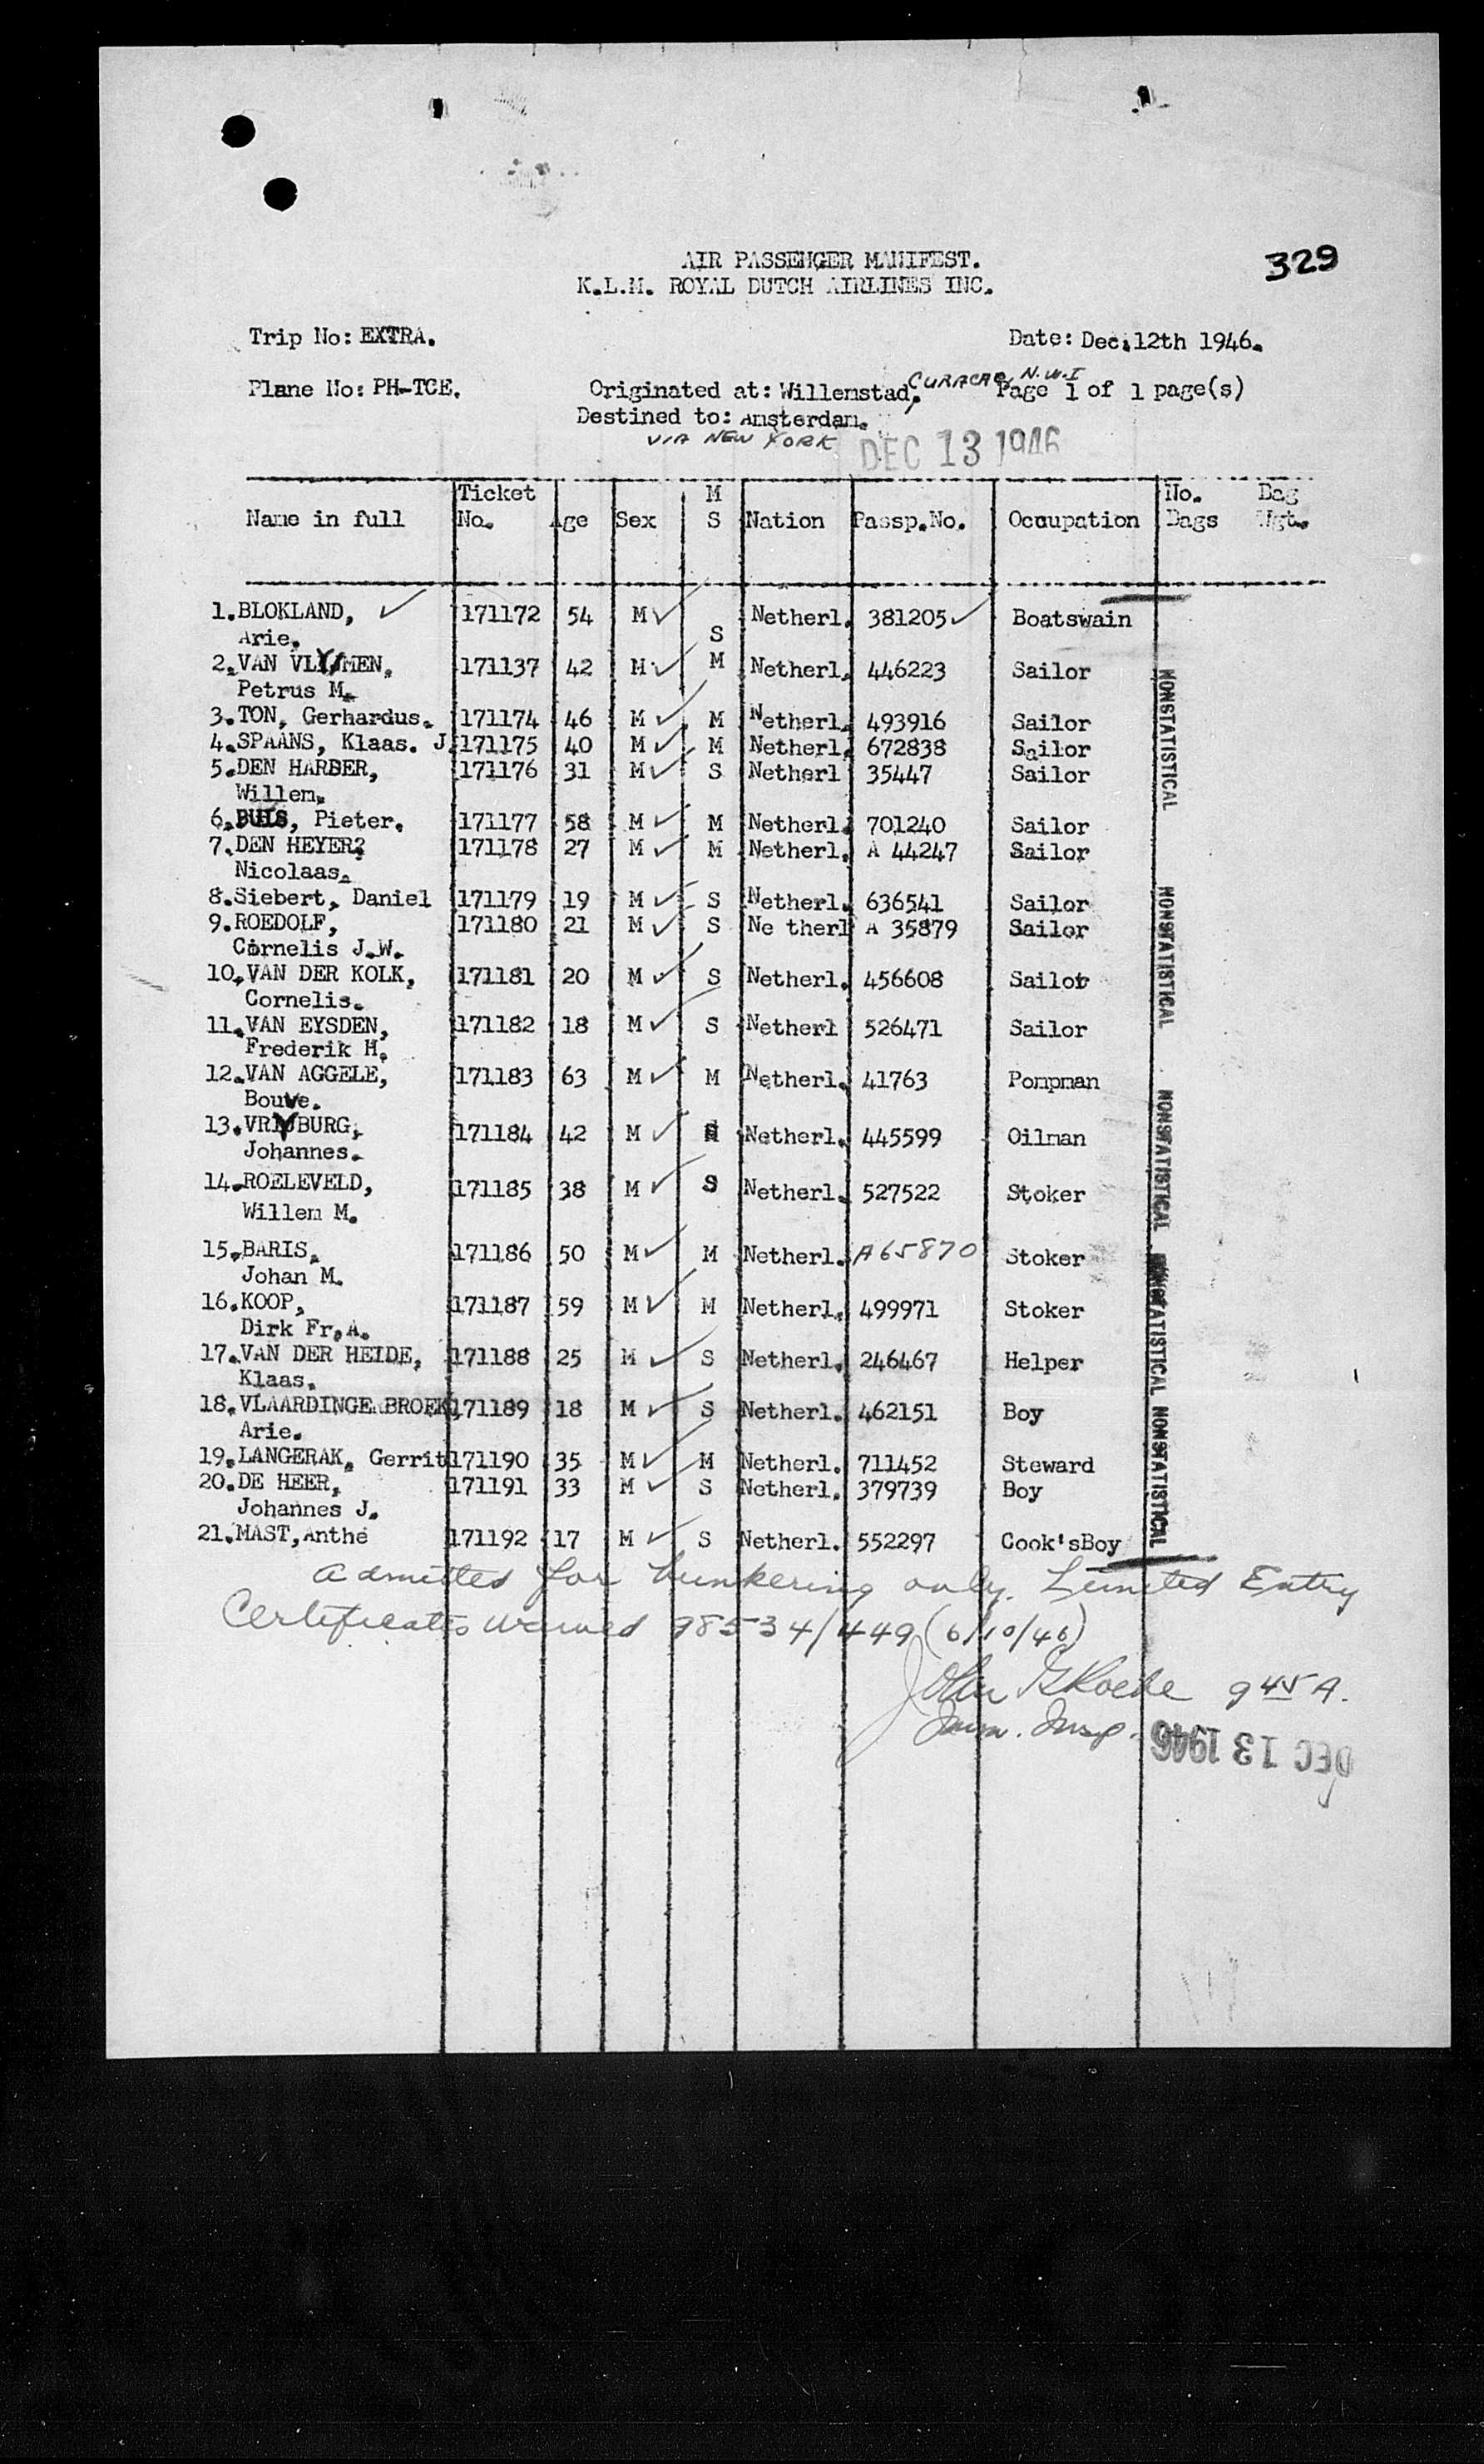 329
AIR PASSENGER MANIFEST.
K.L.M. ROYAL DUTCH AIRLINES INC.
Trip No: EXTRA. Date: Dec.12th 1946.
Plane No: PH-TCE. Originated at: Willemstad, CURACAO, N.W.I Page 1 of 1 page(s)
Destined to: Amsterdam.
VIA NEW YORK DEC 13 1946
Name in full Ticket No. Age Sex M S Nation Passp.No. Ocuupation No. Bags Bag Wgt.
1.BLOKLAND, 171172 54 M S Netherl. 381205 Boatswain
Arie.
2.VAN VLYMEN, 171137 42 M M Netherl. 446223 Sailor
Petrus M.
3.TON, Gerhardus. 171174 46 M M Netherl. 493916 Sailor
4.SPAANS, Klaas. J. 171175 40 M M Netherl. 672838 Sailor
5.DEN HARDER, 171176 31 M S Netherl 35447 Sailor
Willem.
6.BUIS, Pieter. 171177 58 M M Netherl. 701240 Sailor
7.DEN HEYER? 171178 27 M M Netherl. A 44247 Sailor
Nicolaas.
8.Siebert, Daniel 171179 19 M S Netherl. 636541 Sailor
9.ROEDOLF, 171180 21 M S Ne therl A 35879 Sailor
Cornelis J.W.
10.VAN DER KOLK, 171181 20 M S Netherl. 456608 Sailor
Cornelis.
11.VAN EYSDEN, 171182 18 M S Netherl 526471 Sailor
Frederik H.
12.VAN AGGELE, 171183 63 M M Netherl. 41763 Pompman
Bouwe.
13.VRYBURG, 171184 42 M S Netherl. 445599 Oilman
Johannes.
14.ROELEVELD, 171185 38 M S Netherl. 527522 Stoker
Willem M.
15.BARIS, 171186 50 M M Netherl. A65870 Stoker
Johan M.
16.KOOP, 171187 59 M M Netherl. 499971 Stoker
Dirk Fr.A.
17.VAN DER HEIDE, 171188 25 M S Netherl. 246467 Helper
Klaas.
18.VLAARDINGERBROEK 171189 18 M S Netherl. 462151 Boy
Arie.
19.LANGERAK, Gerrit 171190 35 M M Netherl. 711452 Steward
20.DE HEER, 171191 33 M S Netherl. 379739 Boy
Johannes J.
21.MAST, Anthe 171192 17 M S Netherl. 552297 Cook'sBoy
NONSTATISTICAL
NONSTATISTICAL
NONSTATISTICAL
NONSTATISTICAL
NONSTATISTICAL
Admitted for bunkering only. Limited Entry
Certificates waived 98534/449 (6/10/46)
John 9 45 A.
Imm. Insp.
DEC 13 1946